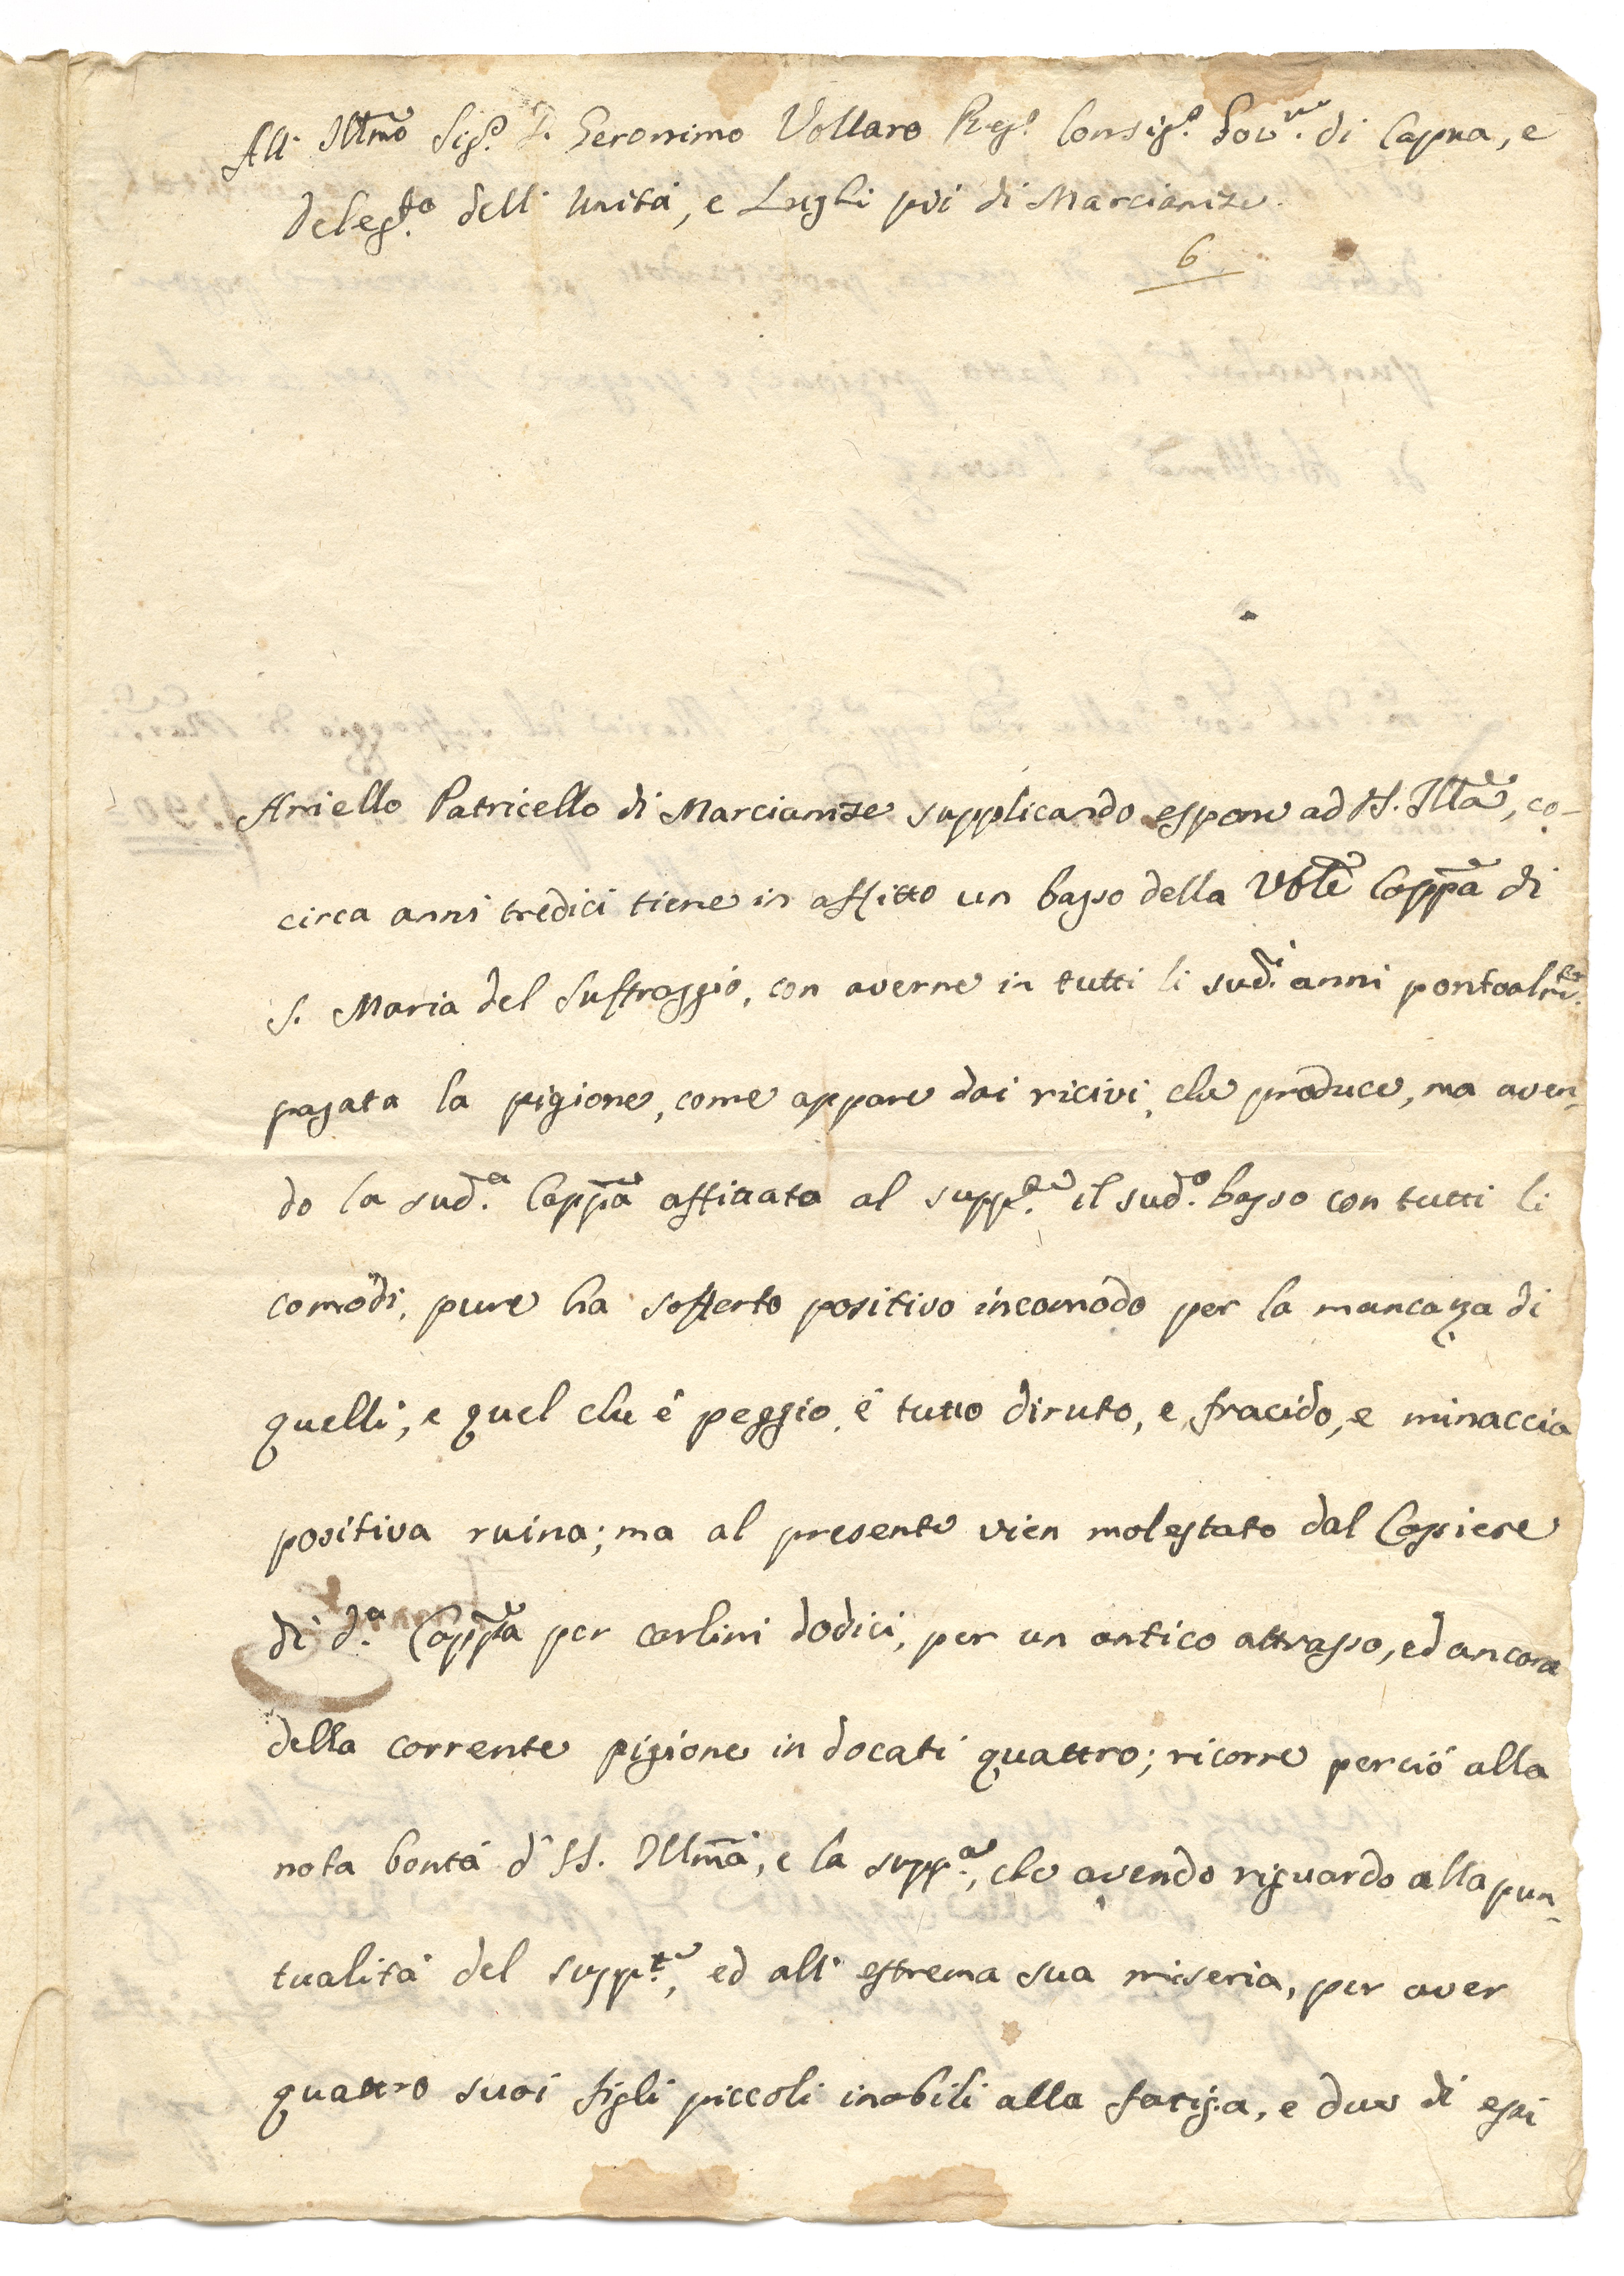 All' Illmo Sigr. D. Geronimo Vollaro Rego. Consigo. Govre. di Capua, e
Delegto. dell' Unità, e Luoghi pii di Marcianise.
6
Aniello Patricello di Marcianise supplicando espone ad V.S. Illma, co-
circa anni tredici tiene in affitto un basso della Vble Cappa di
S. Maria del Suffraggio, con averne in tutti li sudi. anni pontoalmte.
pagata la pigione, come appare dai ricivi, che produce, ma aven-
do la suda. Cappa affittata al suppte. il sudo. basso con tutti li
comodi, pure ha sofferto positivo incomodo per la mancanza di
quelli, e quel che è peggio, è tutto diruto, e fracido, e minaccia
positiva ruina; ma al presente vien molestato dal Cassiere
di da. Cappa per carlini dodici, per un antico attrasso, ed ancora
della corrente pigione in docati quattro; ricorre perciò alla
nota bontà di V.S. Illma, e la suppca, che avendo riguardo alla pun-
tualità del suppte., ed all' estrema sua miseria, per aver
quattro suoi figli piccoli inabili alla fatiga, e due di essi